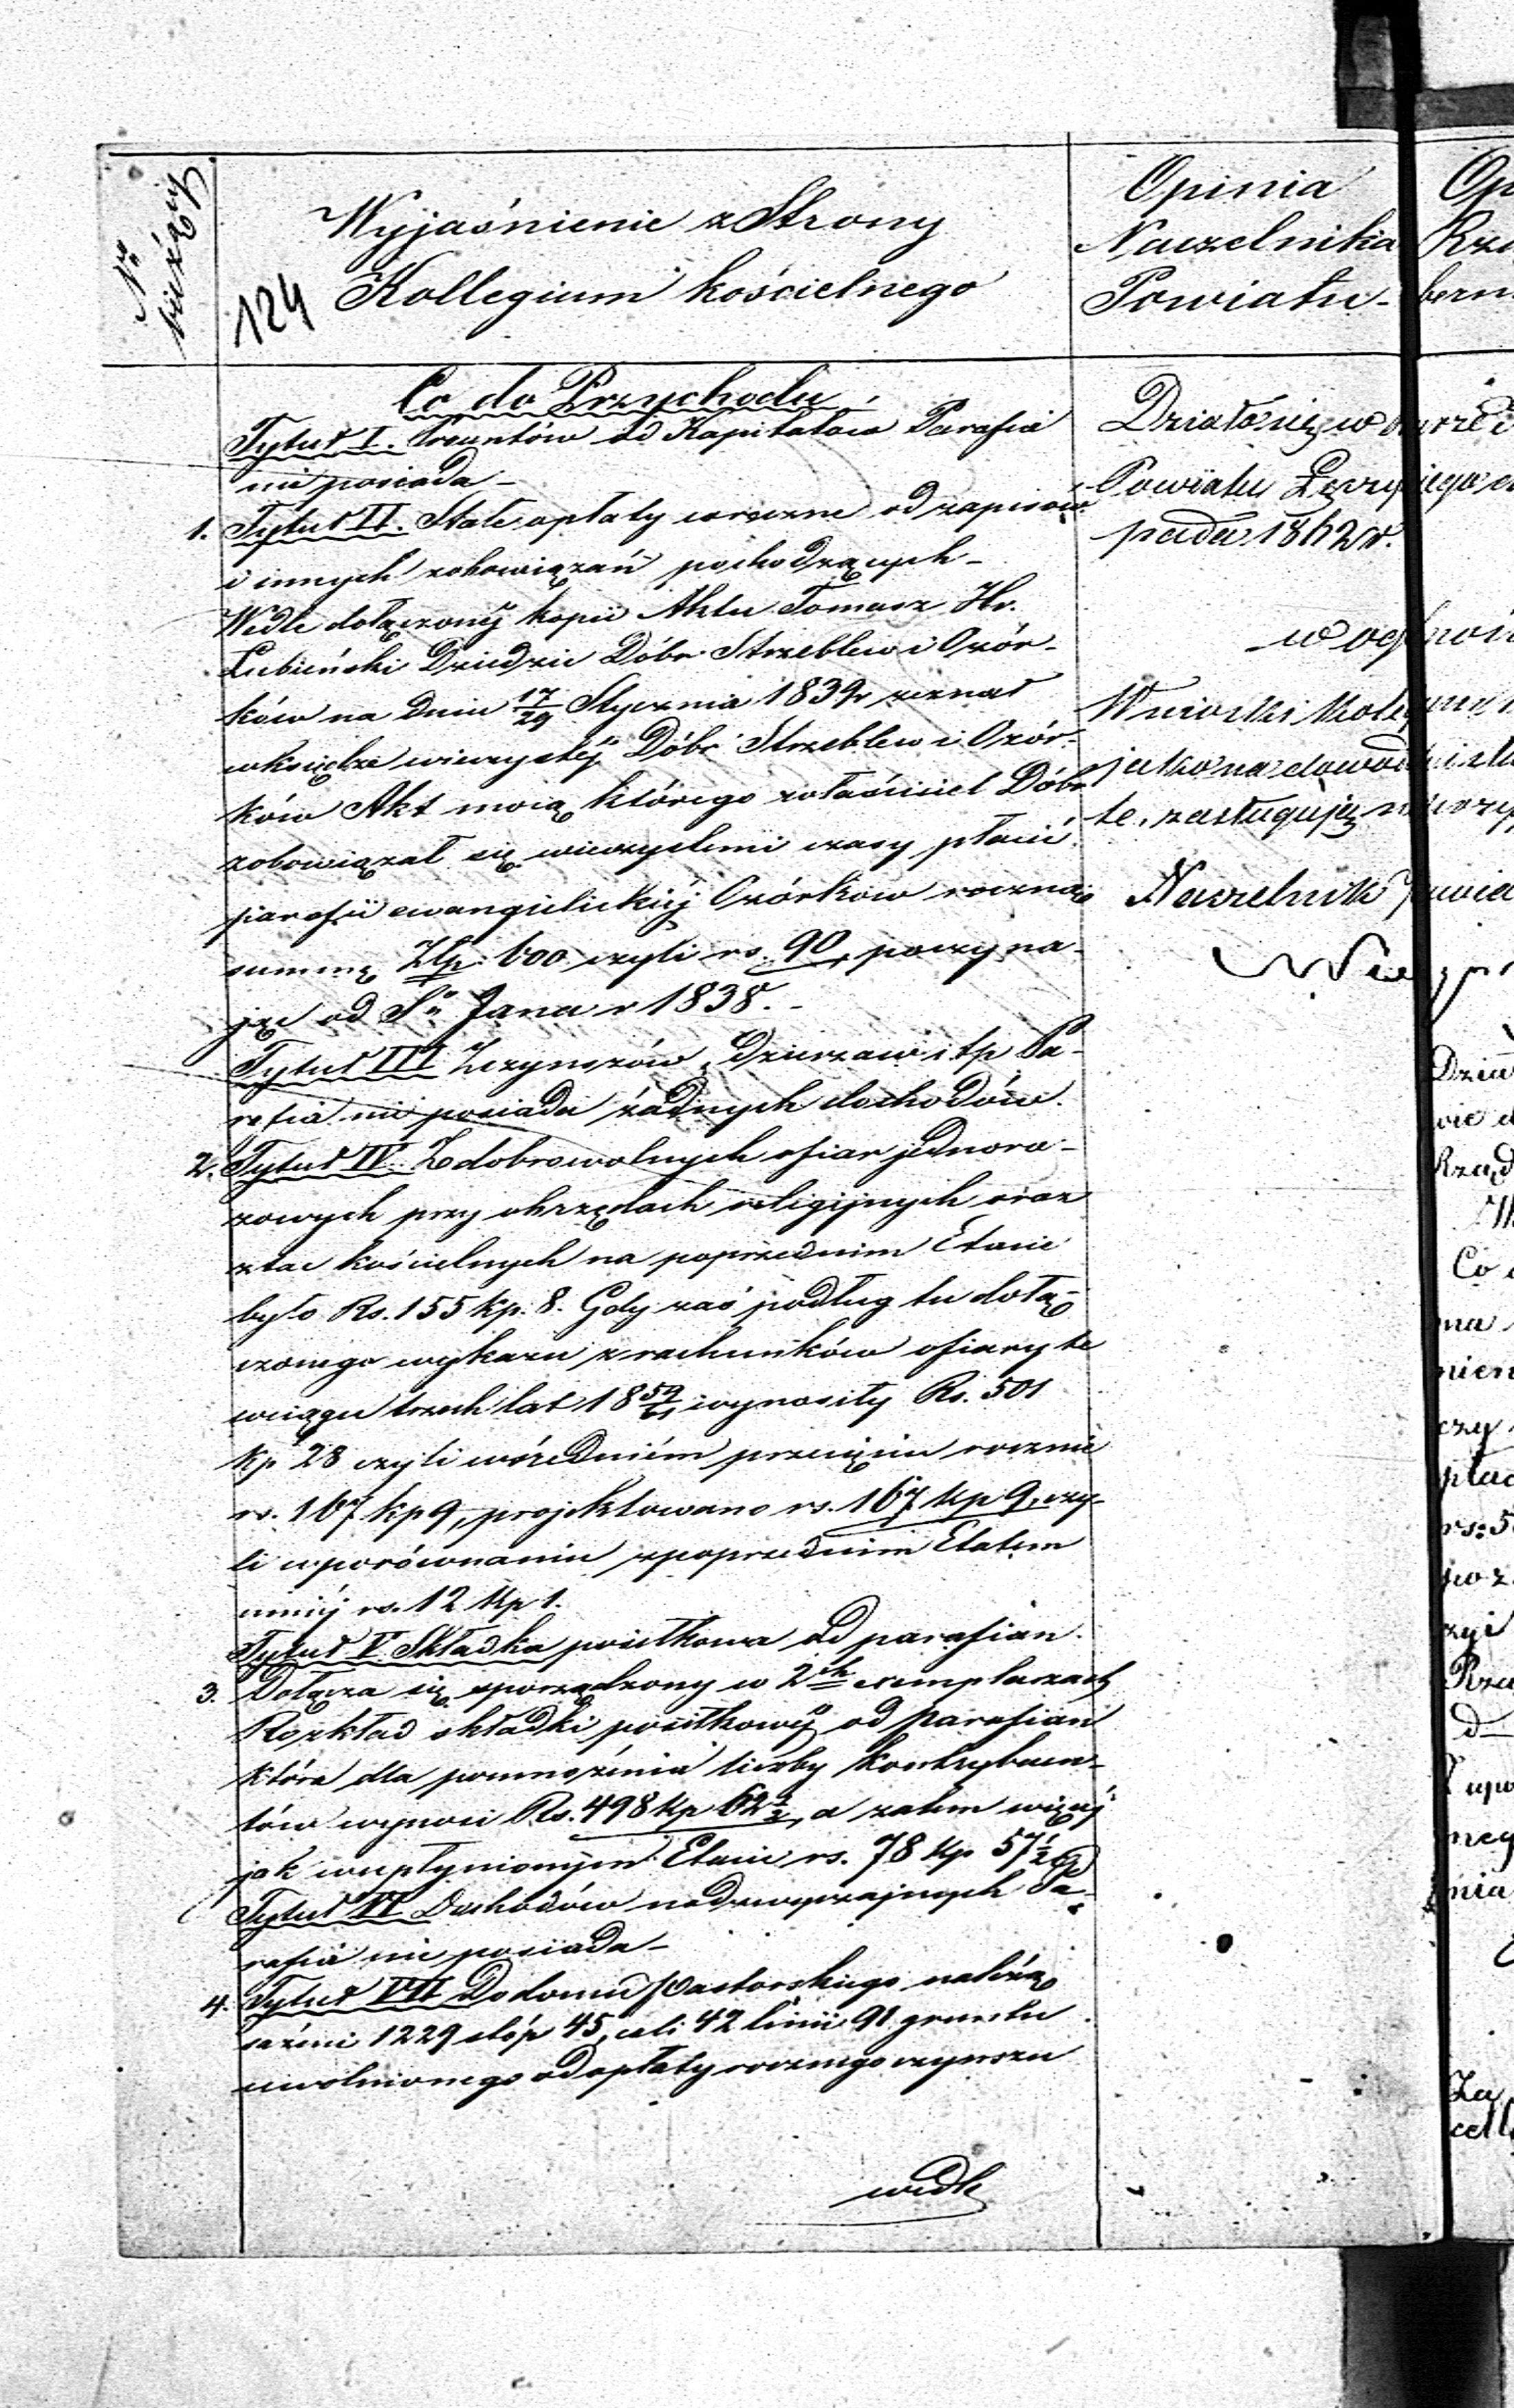 Nr bieżący
124
Wyjaśnienie z Strony
Kollegium kościelnego
Co do Przychodu.
Tytuł I. Procentów od Kapitałów Parafia
nie posiada -
1. Tytuł II. Stałe opłaty wieczne od zapisów
i innych zobowiązań pochodzących -
Wedle dołączonéj kopii Aktu Tomasz Hr.
Łubieński Dziedzic Dóbr Strzeblew i Ozór-
ków na dniu 17/29 Stycznia 1839r zeznał
w księdze wieczystéj Dóbr Strzeblew i Ozór-
ków Akt mocą którego właściciel Dóbr
zobowiązał się wieczystemi czasy płacić
parafii ewangielickiéj Ozórków roczną
summę Złp. 600 czyli rs. 90, poczyna-
jąc od Sgo Jana r 1838. -
Tytuł III Z czynszów, Dzierzaw i tp Pa-
rafia nie posiada żadnych dochodów.
2. Tytuł IV. Z dobrowolnych ofiar jednora-
zowych przy obrzędach religijnych oraz
z tac kościelnych na poprzednim Etacie
było Rs. 155 kp. 8. Gdy zaś podług tu dołą-
czonego wykazu z rachunków ofiary te
w ciągu trzech lat 1859/61 wynosiły Rs. 501
kp 28 czyli w średniém przecięciu rocznie
rs. 167 kp 9, projektowano rs. 167 kp 9, czy-
li w porównaniu z poprzednim Etatem
więcéj rs. 12 kp 1.
Tytuł V Składka posiłkowa od parafian.
3. Dołącza się sporządzony w 2ch exemplarzach
Rozkład składki posiłkowéj od parafian
która dla pomnożenia liczby kontrybuen-
tów wynosi Rs. 498 kp 62½, a zatem więcéj
jak w upłynionym Etacie rs. 78 kp 57½
Tytuł VI Dochodów nadzwyczajnych Pa-
rafia nie posiada -
4. Tytuł VII Do domu Pastorskiego należą
sążni 1229 stóp 45, cali 42 linii 91 gruntu
uwolnionego od opłaty rocznego czynszu
wedle
Opinia
Naczelnika
Powiatu -
Działo się w
Powiatu Łęczyckiego
pada 1862 r.
w og
Wnioski Kolegium
jako na dowod
te, zasługują
Naczelnik Powia